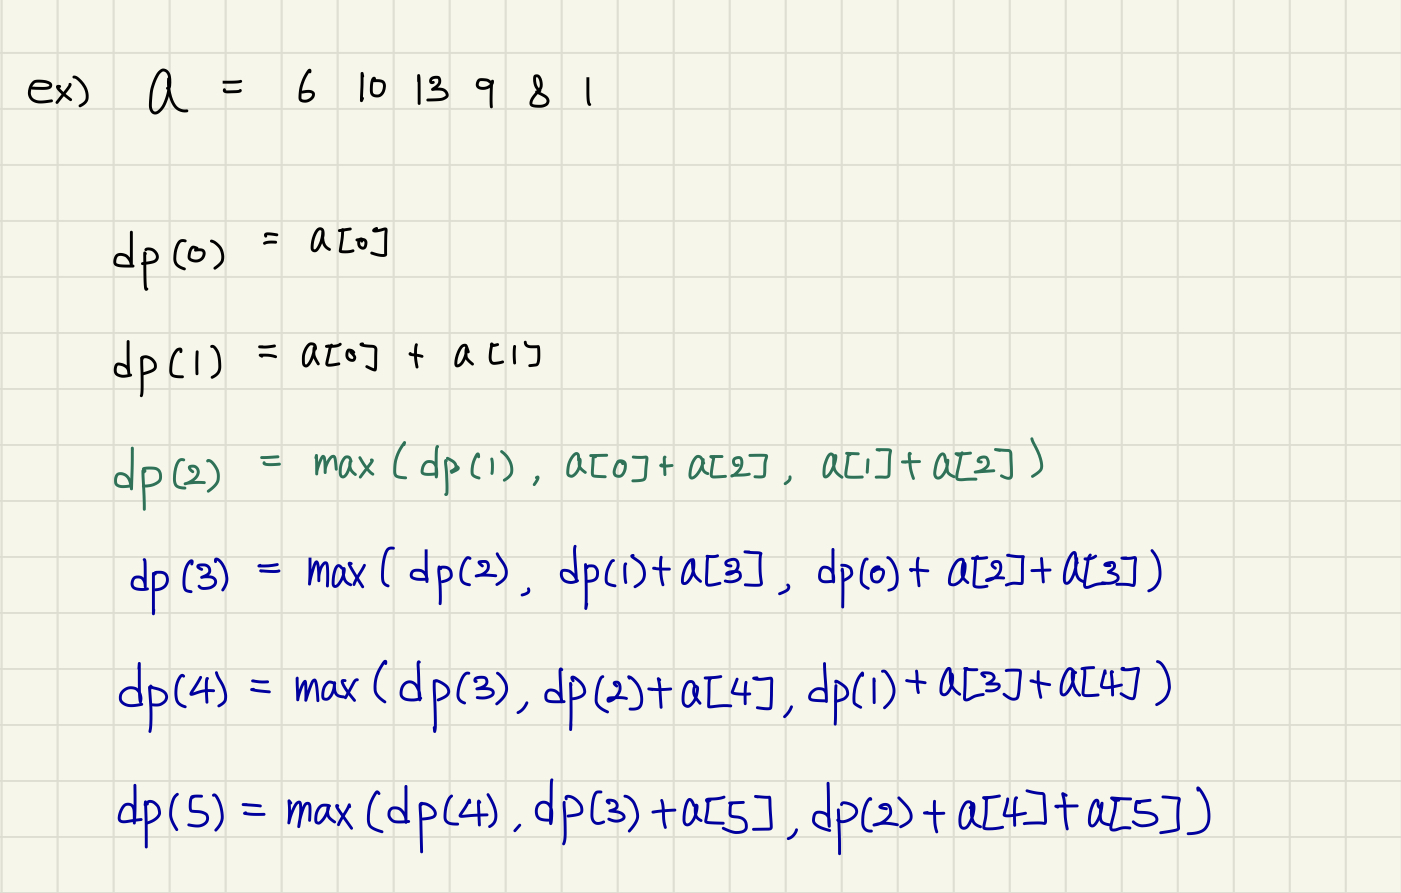 ex) a = 6 10 13 9 8 1
dp(0) = a[0]
dp(1) = a[0] + a[1]
dp(2) = max(dp(1), a[0]+a[2], a[1]+a[2])
dp(3) = max(dp(2), dp(1)+a[3], dp(0)+a[2]+a[3])
dp(4) = max(dp(3), dp(2)+a[4], dp(1)+a[3]+a[4])
dp(5) = max(dp(4), dp(3)+a[5], dp(2)+a[4]+a[5])